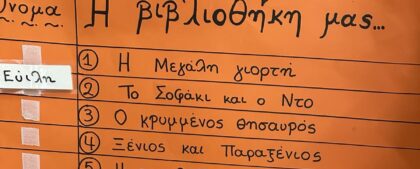 Όνομα Η βιβλιοθήκη μας...
① Η Μεγάλη γιορτή
Εύελη ② Το Σοφάκι και ο Ντο
③ Ο κρυμμένος θησαυρός
④ Ξένιος και Παραξένιος
⑤ Η